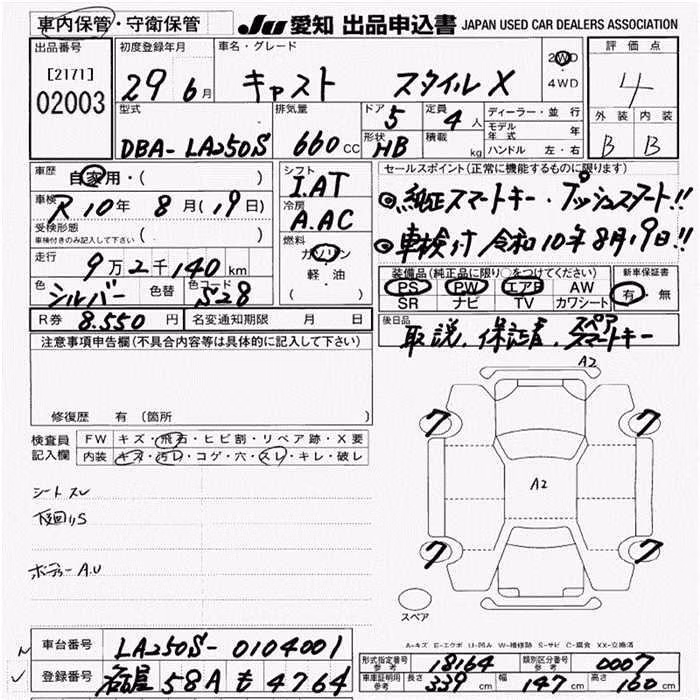 車内保管・守衛保管
JU 愛知 出品申込書 JAPAN USED CAR DEALERS ASSOCIATION
出品番号 初度登録年月 車名・グレード 2WD・4WD 評価点
[2171]
02003 29 6月 キャスト スタイルX 4
型式 排気量 ドア 5 定員 4人 ディーラー・並行 外装 内装
DBA-LA250S 660cc 形状 HB 積載 kg モデル年式 年 B B
ハンドル 左・右
車歴 自家用・( )
車検 R10年8月(19日)
受検形態 車検付きのみ記入して下さい ( )
走行 9万2千140km
色 シルバー 色替 色コード S28
シフト I.AT
冷房 A.AC
燃料 ガソリン 軽油 ( )
セールスポイント(正常に機能するものに限ります)
◎純正スマートキー・プッシュスタート!!
◎車検付 令和10年8月19日!!
装備品(純正品に限り○をつけてください) 新車保証書
PS PW エアB AW 有・無
SR ナビ TV カワシート
R券 8.550円 名変通知期限 月 日
後日品 取説、保証書、スペアスマートキー
注意事項申告欄(不具合内容等は具体的に記入して下さい)
修復歴 有(箇所 )
検査員記入欄
FW キズ・飛石・ヒビ割・リペア跡・X要
内装 キズ・汚レ・コゲ・穴・スレ・キレ・破レ
シートスレ
下回りS
ボディーA.U
A2
7 7
A2
7 7
スペア
A-キズ E-エクボ U-凹み W-補修跡 S-サビ C-腐食 XX-交換済
車台番号 LA250S-0104001
登録番号 名古屋 58A も 4764
形式指定番号 参考 18164 類別区分番号 参考 0007
車庫証明用 参考 長さ 339cm 幅 147cm 高さ 160cm